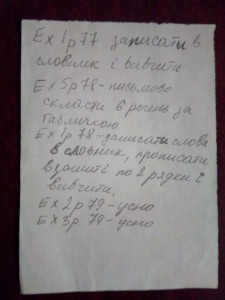 Ex 1p77 записати в
словник і вивчити
Ex 5p78-письмово
скласти 6 речень за
табличкою
Ex 1p78-записати слова
в словник, прописати
в зошиті по 2 рядки і
вивчити.
Ex 2p79-усно
Ex 3p79-усно